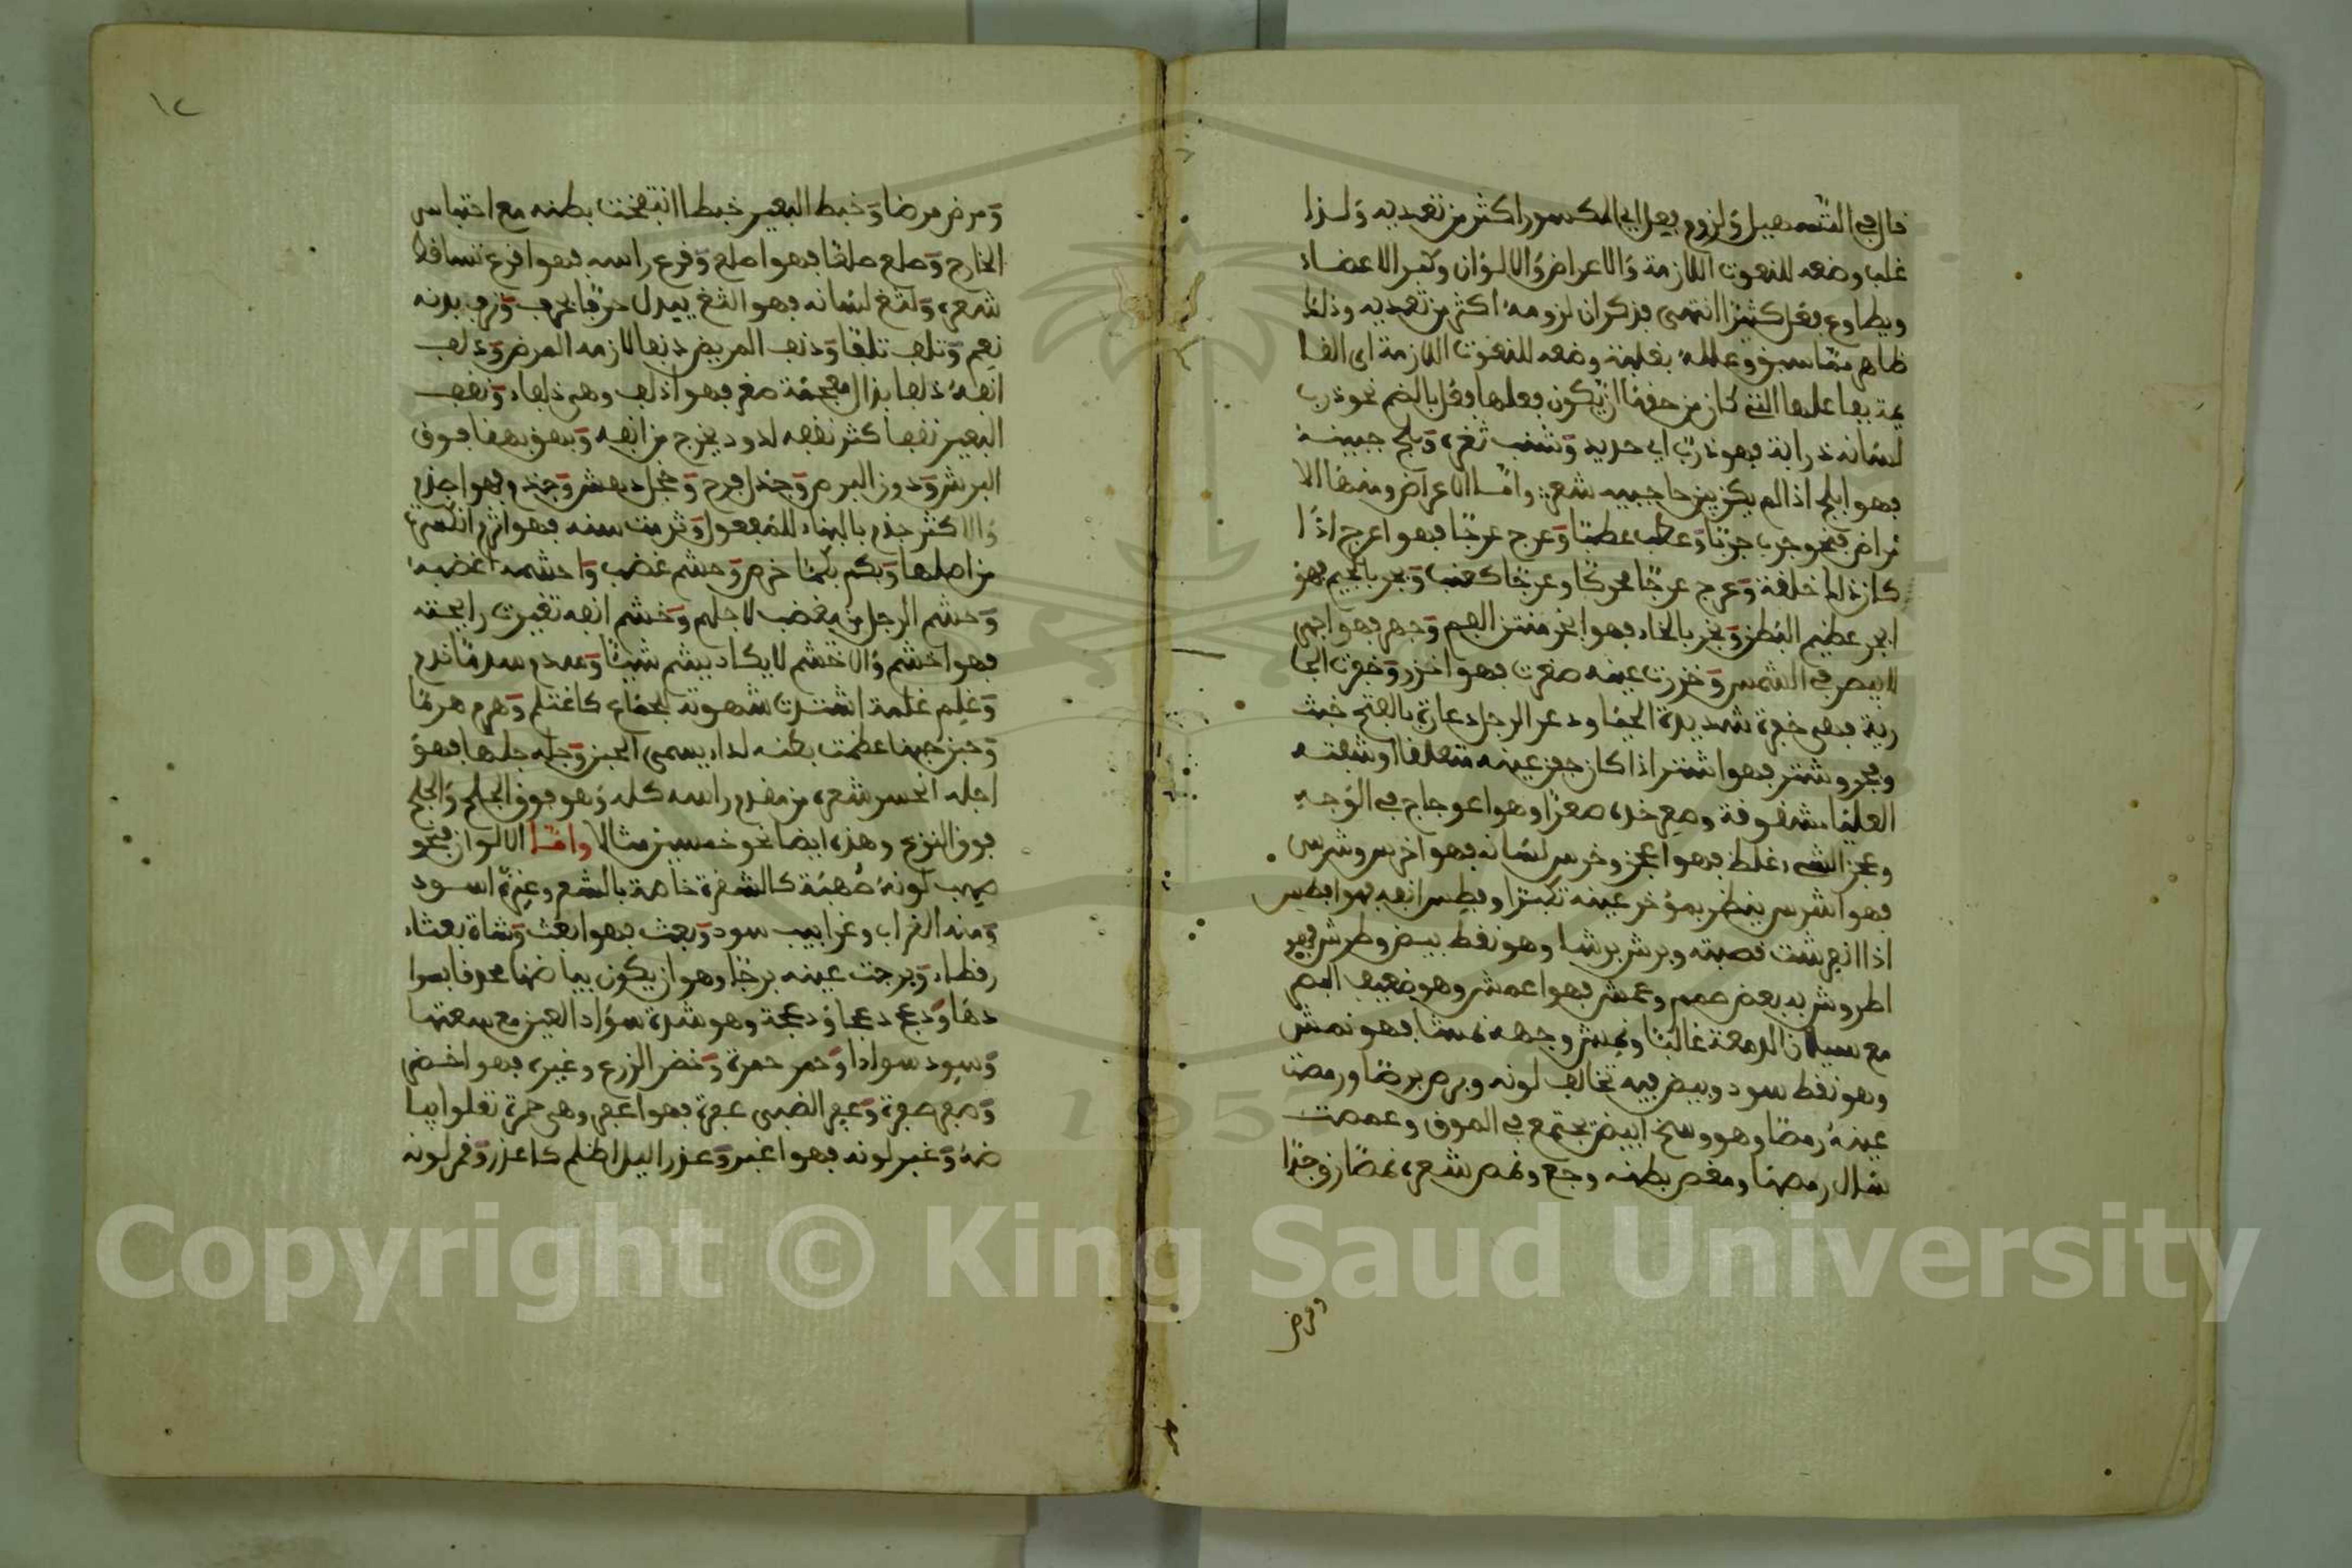 قال في التسهيل ولزوم فعل اي المكسور اكثر من تعديه ولذا
غلب وضعه للنعوت اللازمة والاعراض والالوان وكبر الاعضاء
ويطاوع فعل كثيرا انتهى فذكر ان لزومه اكثر من تعديه وذلك
ظاهر مما سبق وعلله بغلبة وضعه للنعوت اللازمة اي القا
ئمة بفاعلها التي كان من حقها ان يكون فعلها فعل بالضم نحو ذرب
لسانه ذرابة فهو ذرب اي حديد وشنب ثغره وبلج جبينه
فهو ابلج اذا لم يكن بين حاجبيه شعر واما الاعراض ومنها الا
مراض فنحو جرب جربا وعطب عطبا وعرج عرجا فهو اعرج اذا
كان ذلك خلقة وعرج عرجا محركا وعرجا كعنب وبجر بالجيم فهو
ابجر عظيم البطن وبخر بالخاء فهو ابخر منتن الفم وجهر فهو اجهر
لا يبصر في الشمس وخزرت عينه صغرت فهو اخزر وخفرت الجا
رية فهي خفرة شديدة الحيا ودعر الرجل دعارة بالفتح خبث
وفجر وشتر فهو اشتر اذا كان جفن عينه متقلصا او شفته
العليا مشقوقة وصعر خده صعرا وهو اعوجاج في الوجه
وعجز الشيء غلظ فهو اعجز وخرس لسانه فهو اخرس وشرس
فهو اشرس ينظر بمؤخر عينه تكبرا وفطس انفه فهو افطس
اذا انفرشت قصبته وبرش برشا وهو نقط بيض وطرش فهو
اطروش به بعض صمم وعمش فهو اعمش وهو ضعيف البصر
مع سيلان الدمعة غالبا ونمش وجهه نمشا فهو نمش
وهو نقط سود وبيض فيه تخالف لونه وبرص برصا ورمصت
عينه رمصا وهو وسخ ابيض يجتمع في الموق وعمصت
سال رمصها ومغص بطنه وجع ونمص شعره نمصا رق جدا
ومرض
١٢
ومرض مرضا وخبط البعير خبطا انتفخت بطنه مع احتباس
الخارج وصلع صلعا فهو اصلع وقرع راسه فهو اقرع تساقط
شعره ولثغ لسانه فهو الثغ يبدل حرفا بحرف وترف بدنه
نعم وتلف تلفا ودنف المريض دنفا لازمه المرض وذلف
انفه ذلفا بذال معجمة صغر فهو اذلف وهي ذلفاء ونغف
البعير نغفا كثر نغفه لدود يخرج من انفه وبهق بهقا فوق
البرش ودون البرص وجذل فرح وخجل دهش وجذم فهو اجذم
والاكثر جذم بالبناء للمفعول وثرمت سنه فهو اثرم انكسرت
من اصلها وبكم بكما خرس وحشم غضب واحشمه اغضبه
وحشم الرجل من يغضب لاجلهم وخشم انفه تغيرت رايحته
فهو اخشم والاخشم لا يكاد يشم شيئا وسدم سدما ندم
وغلم غلمة اشتدت شهوته لجماع كاغتلم وهرم هرما
وحبن حبنا عظمت بطنه لداء يسمى الحبن وجله جلها فهو
اجله انحسر شعره من مقدم راسه كله وهو فوق الجلح والجلح
فوق النزع وهذه ايضا نحو خمسين مثالا واما الالوان فنحو
صهب لونه صهبة كالشقرة خاصة بالشعر وغربة اسود
ومنه الغراب وغرابيب سود وبغث فهو ابغث وشاة بغثاء
رقطاء وبرجت عينه برجا وهو ان يكون بياضها محدقا بسوا
دها ودعج دعجا ودعجة وهو شدة سواد العين مع سعتها
وسود سوادا وحمر حمرة وخضر الزرع وغيره فهو اخضر
وصفر صفرة وعفر الضبى عفرة فهو اعفر وهي حمرة تعلوا بيا
ضه وغبر لونه فهو اغبر وغدر اليل اظلم كاغدر وقمر لونه
Copyright © King Saud University
195